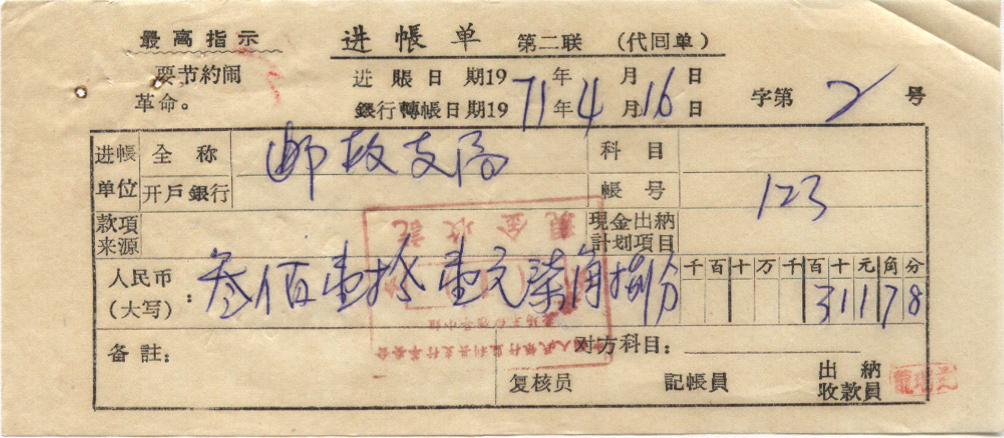 最高指示 进帳单 第二联 (代回单)
要节約闹 进賬日期1971年4月16日
革命。 銀行轉帳日期1971年4月16日 字第2号
进帳单位 全称 邮政支局 科目
开戶銀行 帳号 123
款項来源 現金出納計划項目
人民币(大写): 叁佰壹拾壹元柒角捌分 千百十万千百十元角分 31178
現金收訖
中国人民銀行监利县支行革委会
备註: 对方科目:
复核員 記帳員 出納收款員